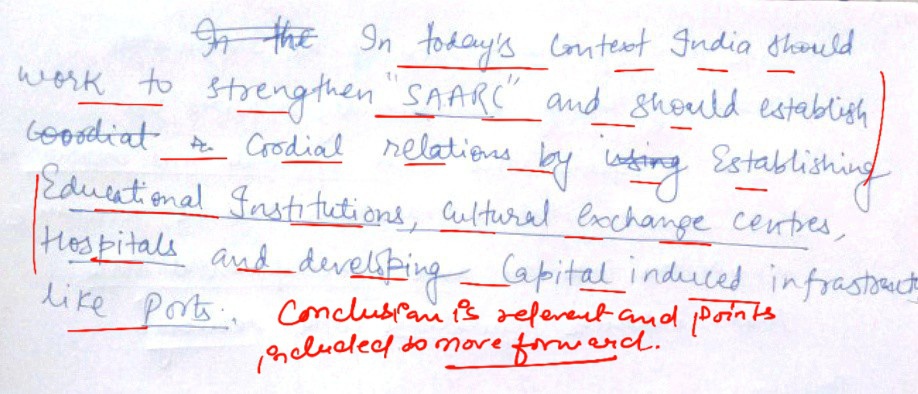 In the In today's context India should
work to strengthen "SAARC" and should establish
Coordial Cordial relations by using Establishing
Educational Institutions, Cultural Exchange centres,
Hospitals and developing Capital induced infrastruct
like Ports.
Conclusion is relevent and points
included to move forward.